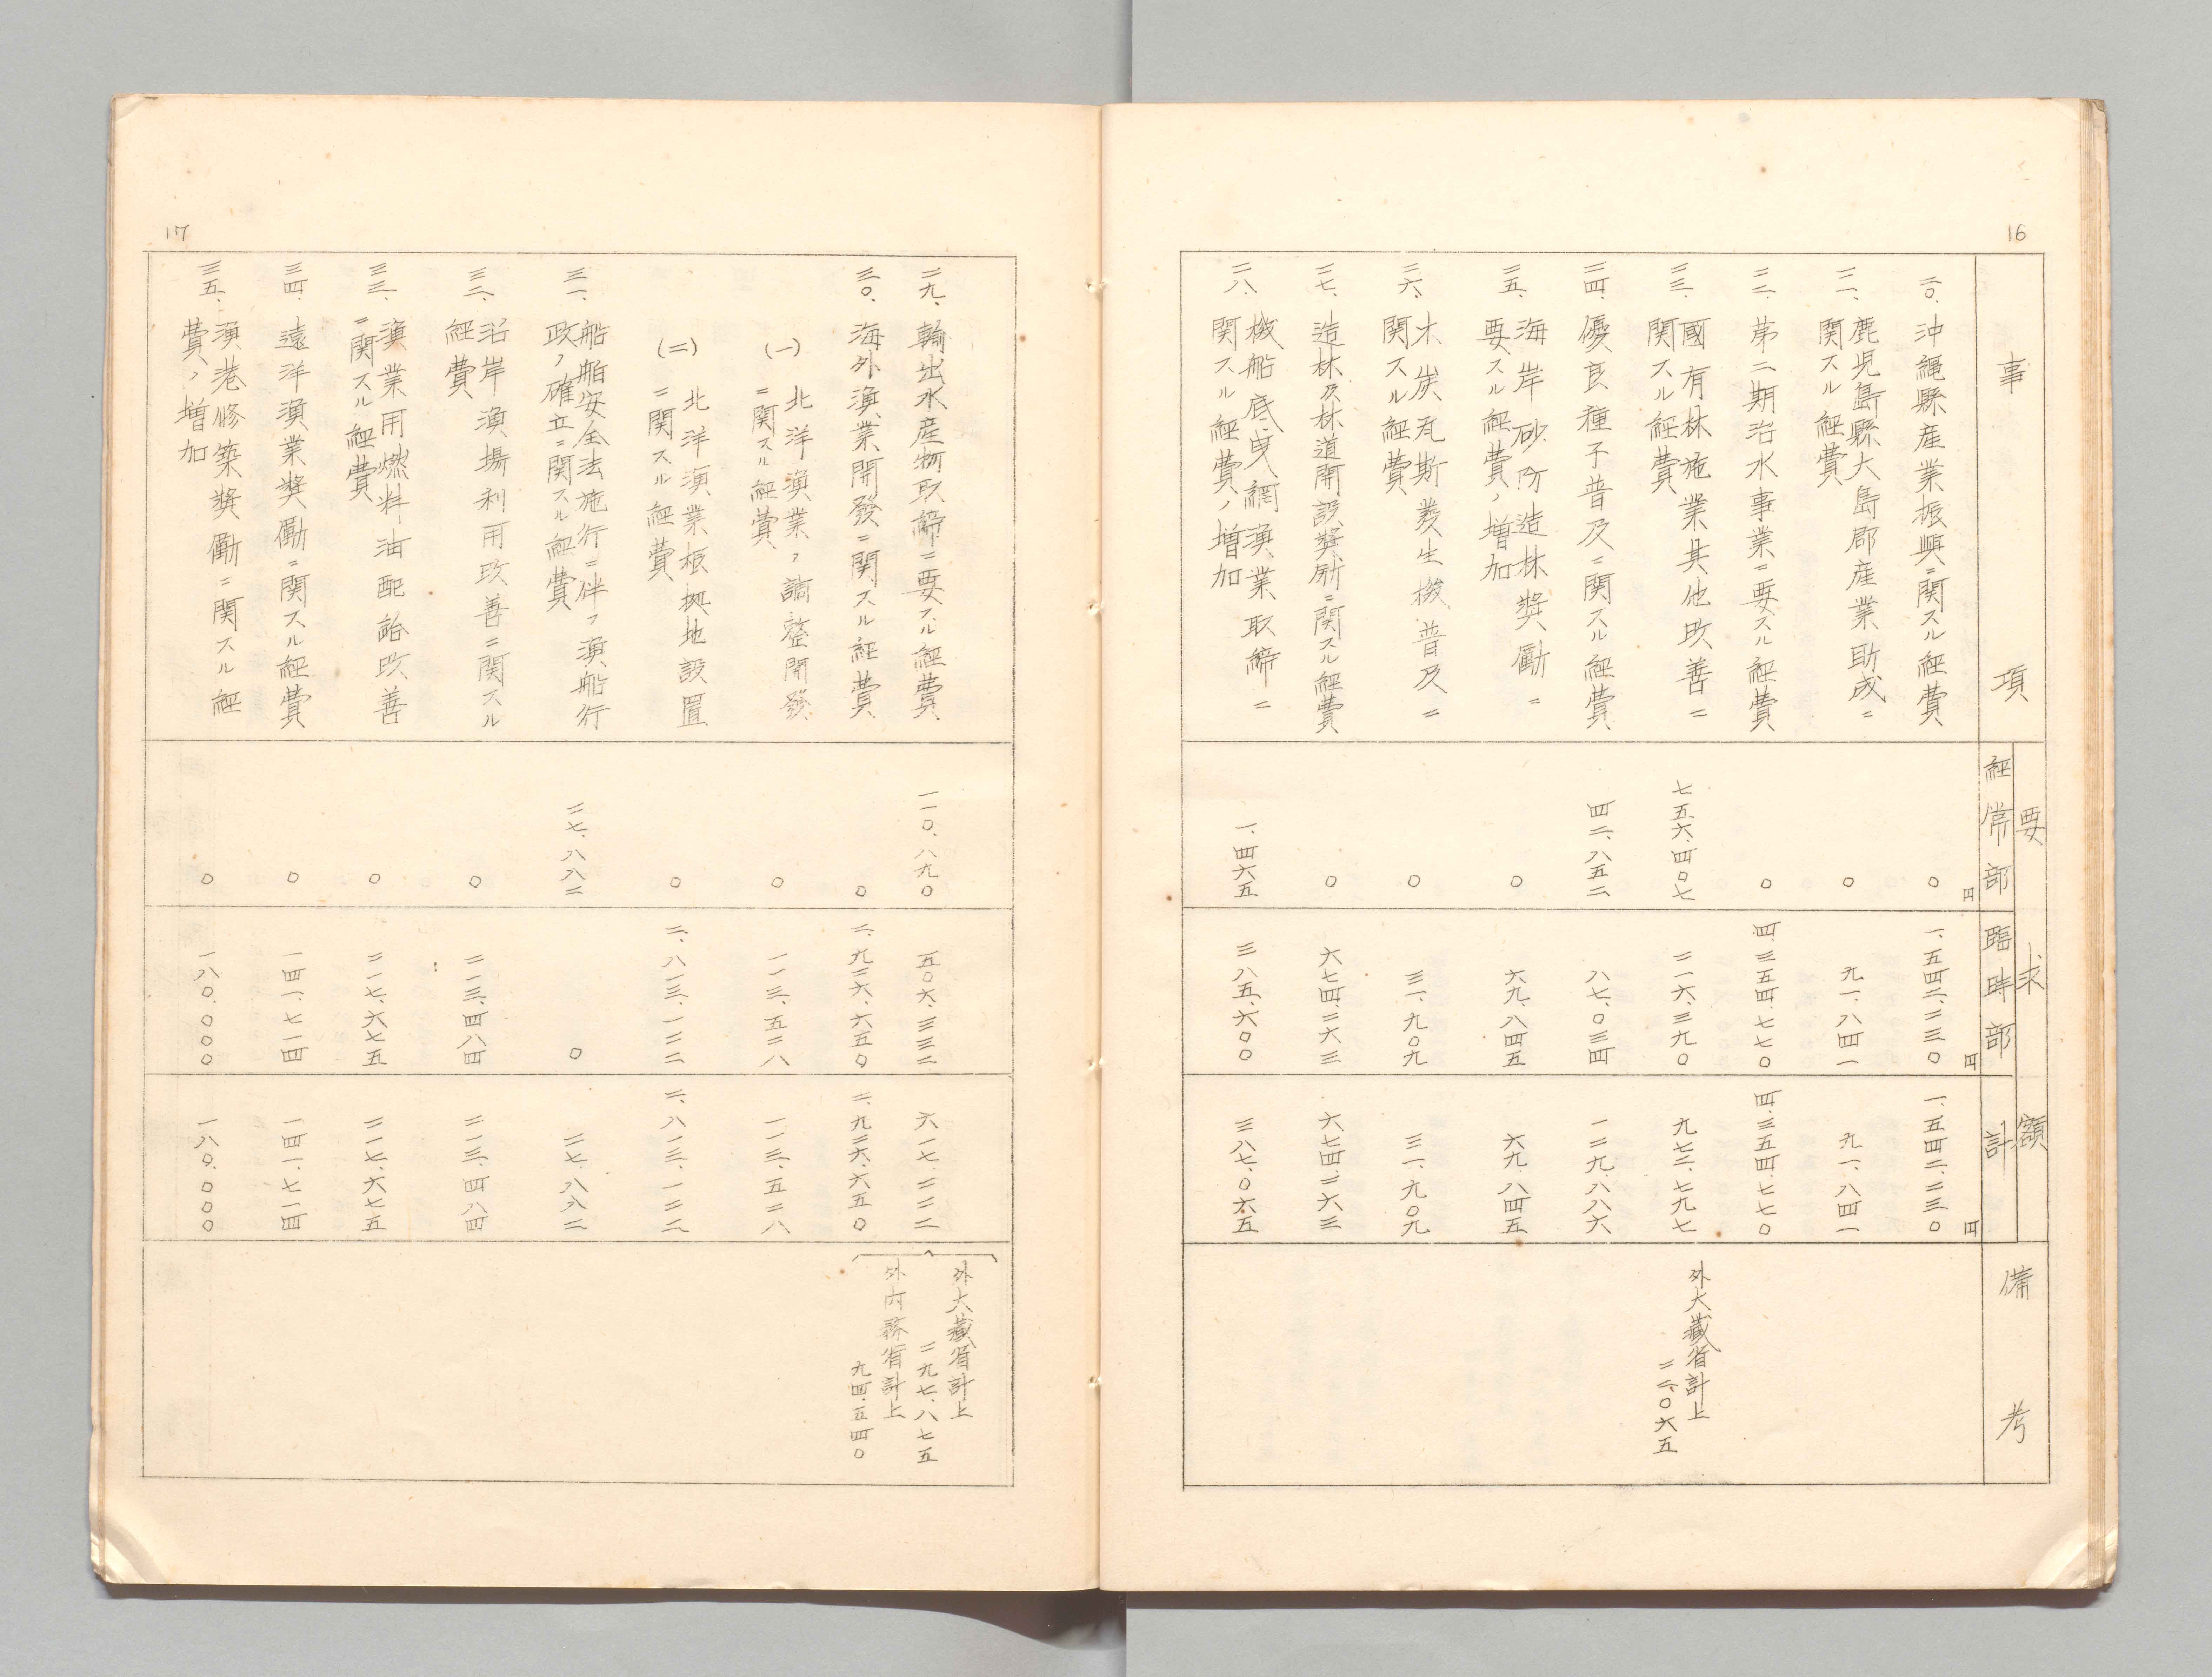 16
事項
要求額
經常部
臨時部
計
備考
円
円
円
二〇、沖縄縣産業振興ニ関スル経費
〇
一、五四二、二三〇
一、五四二、二三〇
二一、鹿児島縣大島郡産業助成ニ
関スル経費
〇
九一、八四一
九一、八四一
二二、第二期治水事業ニ要スル経費
〇
四、三五四、七七〇
四、三五四、七七〇
二三、國有林施業其他改善ニ
関スル経費
七五六、四〇七
二一六、三九〇
九七二、七九七
外大藏省計上
二二、〇六五
二四、優良種子普及ニ関スル経費
四二、八五二
八七、〇三四
一二九、八八六
二五、海岸砂防造林奨勵ニ
要スル経費ノ増加
〇
六九、八四五
六九、八四五
二六、木炭瓦斯発生機普及ニ
関スル経費
〇
三一、九〇九
三一、九〇九
二七、造林及林道開設奨励ニ関スル経費
〇
六七四、二六三
六七四、二六三
二八、機船底曳網漁業取締ニ
関スル経費ノ増加
一、四六五
三八五、六〇〇
三八七、〇六五
17
二九、輸出水産物取締ニ要スル経費
一一〇、八九〇
五〇六、三三二
六一七、二二二
外大藏省計上
二九七、八七五
外内務省計上
九四、五四〇
三〇、海外漁業開發ニ関スル経費
〇
二、九二六、六五〇
二、九二六、六五〇
(一) 北洋漁業ノ調整開發
ニ関スル経費
〇
一一三、五二八
一一三、五二八
(二) 北洋漁業根拠地設置
ニ関スル経費
〇
二、八一三、一二二
二、八一三、一二二
三一、船舶安全法施行ニ伴フ漁船行
政ノ確立ニ関スル経費
二七、八八二
〇
二七、八八二
三二、沿岸漁場利用改善ニ関スル
経費
〇
二一三、四八四
二一三、四八四
三三、漁業用燃料油配給改善
ニ関スル経費
〇
二一七、六七五
二一七、六七五
三四、遠洋漁業奨勵ニ関スル経費
〇
一四一、七一四
一四一、七一四
三五、漁港修築奨勵ニ関スル経
費ノ増加
〇
一八〇、〇〇〇
一八〇、〇〇〇